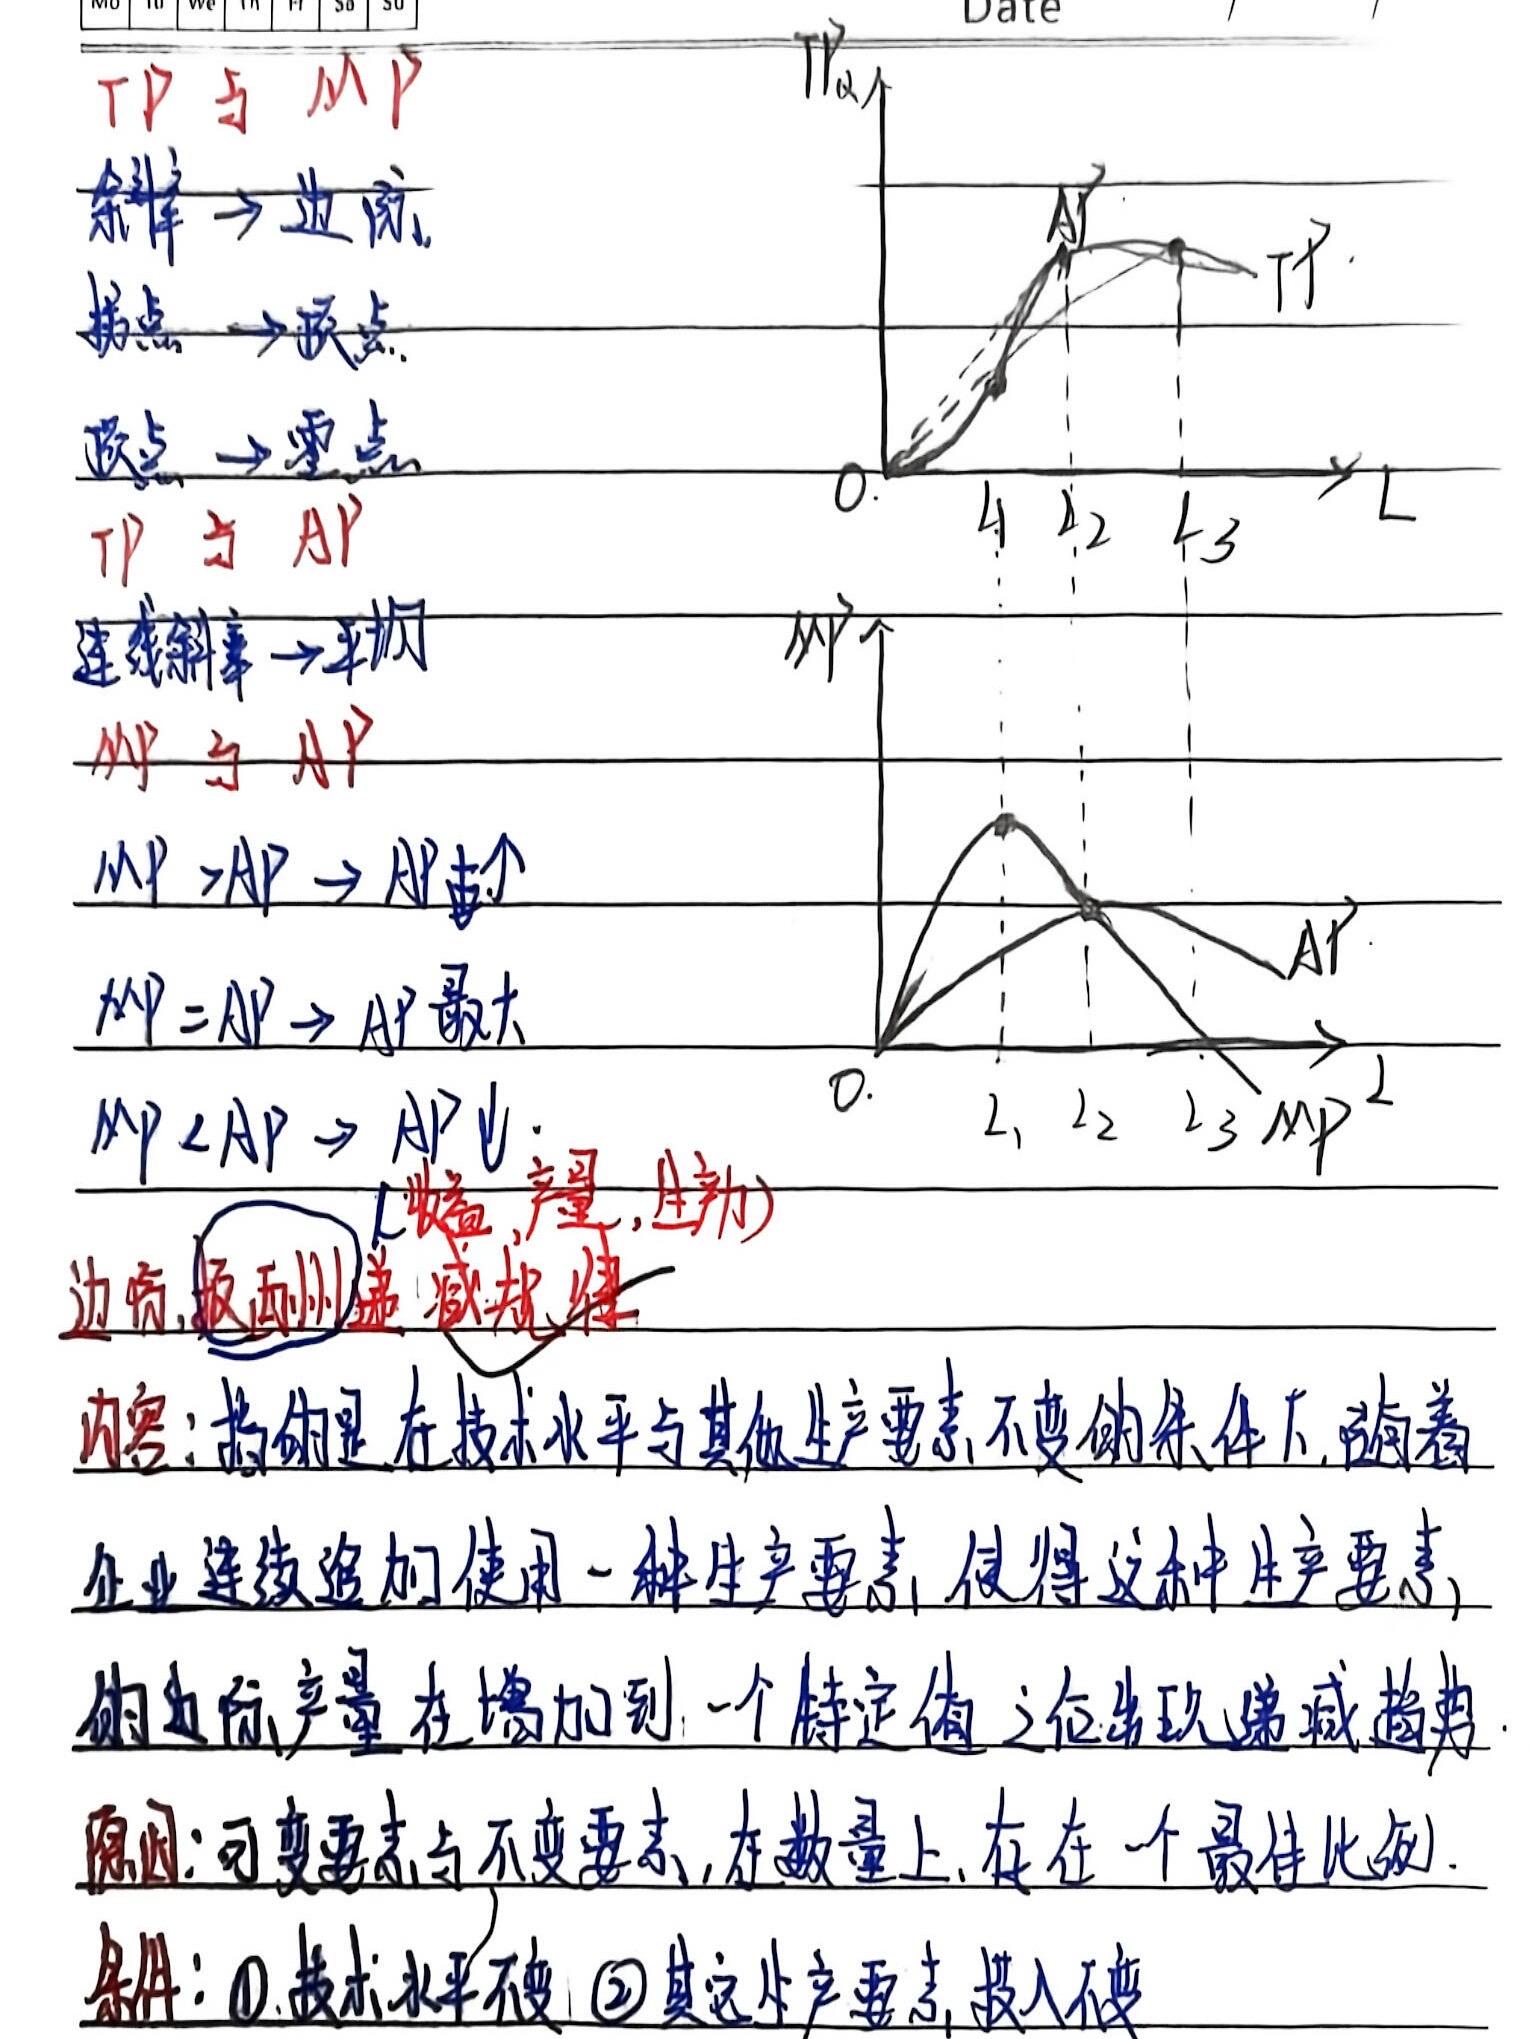 Mo Tu We Th Fr Sa Su
Date / /
TP 与 MP
斜率 → 边际
拐点 → 顶点
顶点 → 零点
TP 与 AP
连线斜率 → 平均
MP 与 AP
MP > AP → AP ↑
MP = AP → AP 最大
MP < AP → AP ↓
TP Q
AP
TP
O
L1 L2 L3 L
MP
AP
O
L1 L2 L3 MP L
(收益,产量,生产力)
边际报酬递减规律
内容:指的是在技术水平与其他生产要素不变的条件下,随着
企业连续追加使用一种生产要素,使得这种生产要素
的边际产量在增加到一个特定值之后出现递减趋势.
原因:可变要素与不变要素,在数量上,存在一个最佳比例.
条件:①技术水平不变 ②其它生产要素投入不变